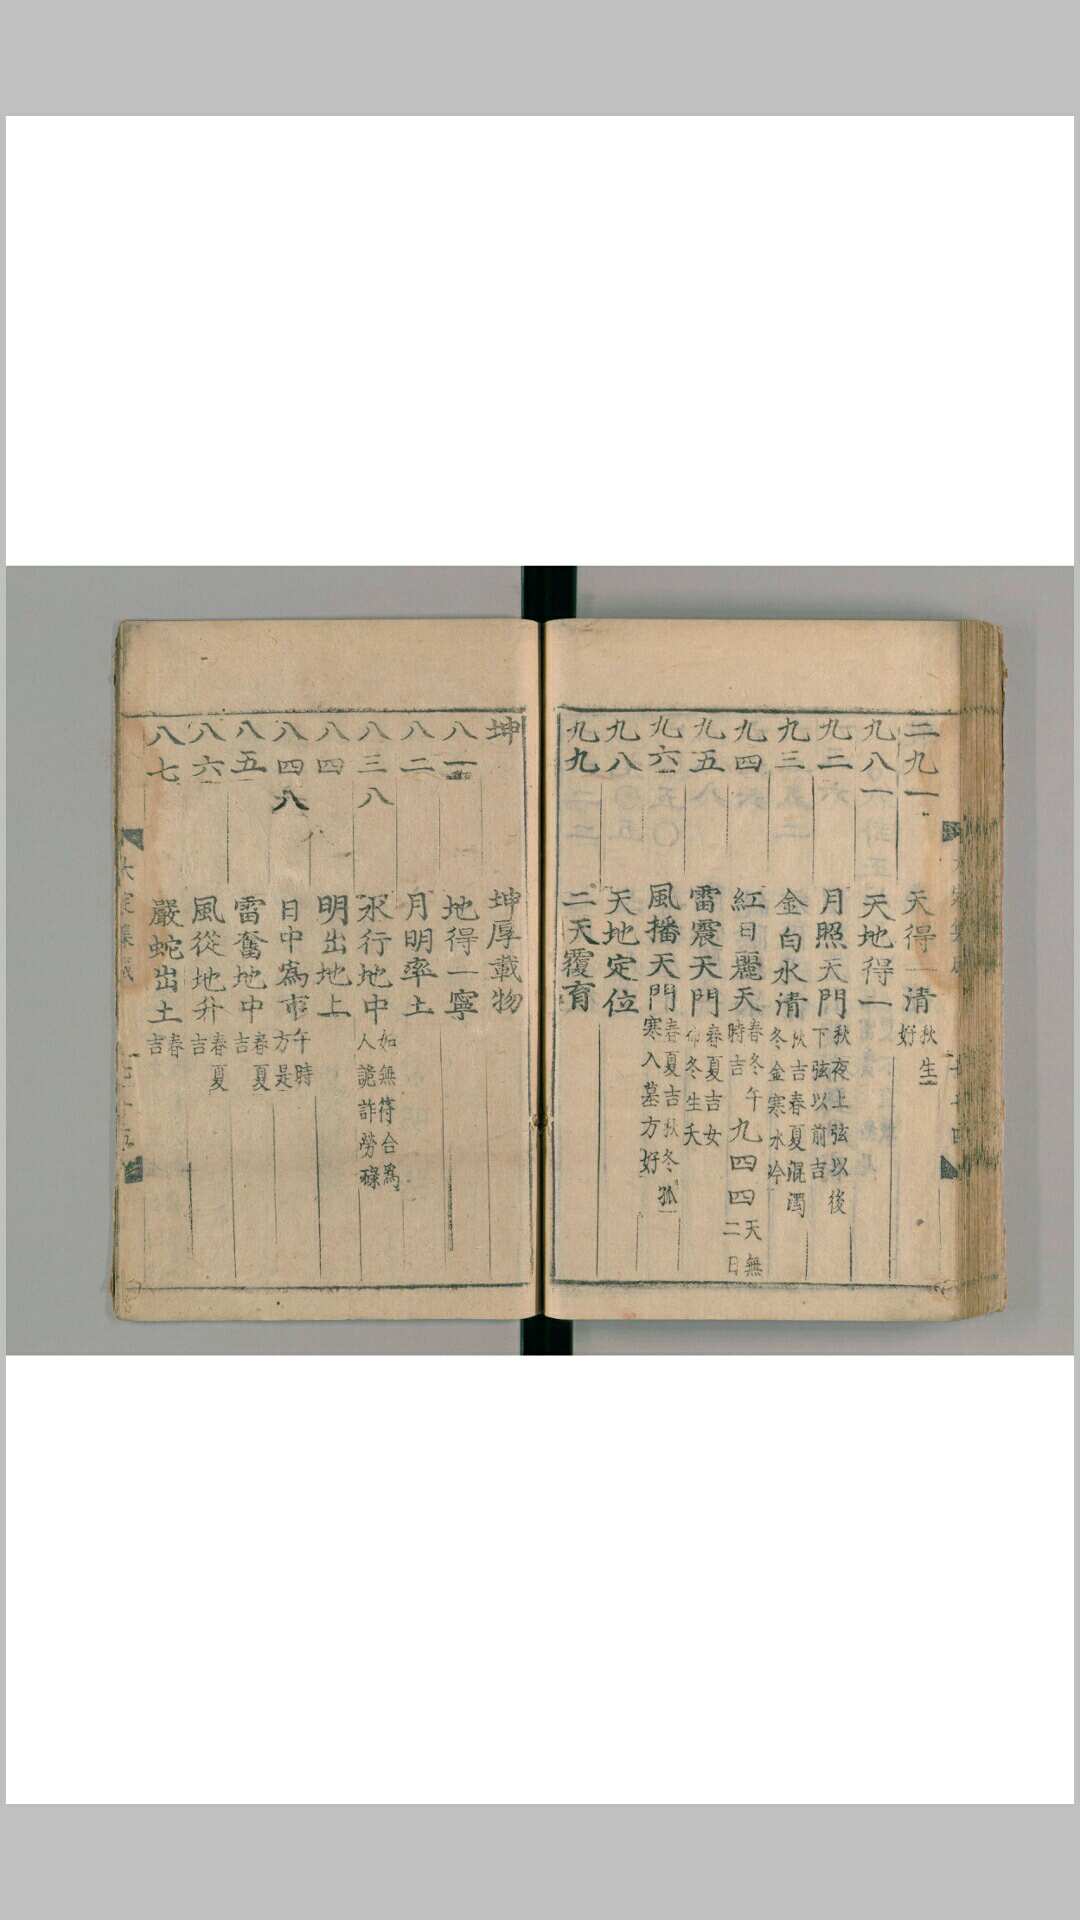 二九一 天得一清 秋生好
九八一 天地得一
九二 月照天門 秋夜上弦以後下弦以前吉
九三 金白水清 秋吉春夏混濁冬金寒水冷
九四 紅日麗天 春冬午時吉 九四四 天無二日
九五 雷震天門 春夏吉女命冬生夭
九六 風播天門 春夏吉秋冬孤寒入墓方好
九八 天地定位
九九 二天覆育
坤 坤厚載物
八一 地得一寧
八二 月明率土
八三八 水行地中 如無符合為人詭詐勞碌
八四 明出地上
八四八 日中為市 午時方是
八五 雷奮地中 春夏吉
八六 風從地升 春夏吉
八七 嚴蛇出土 春吉